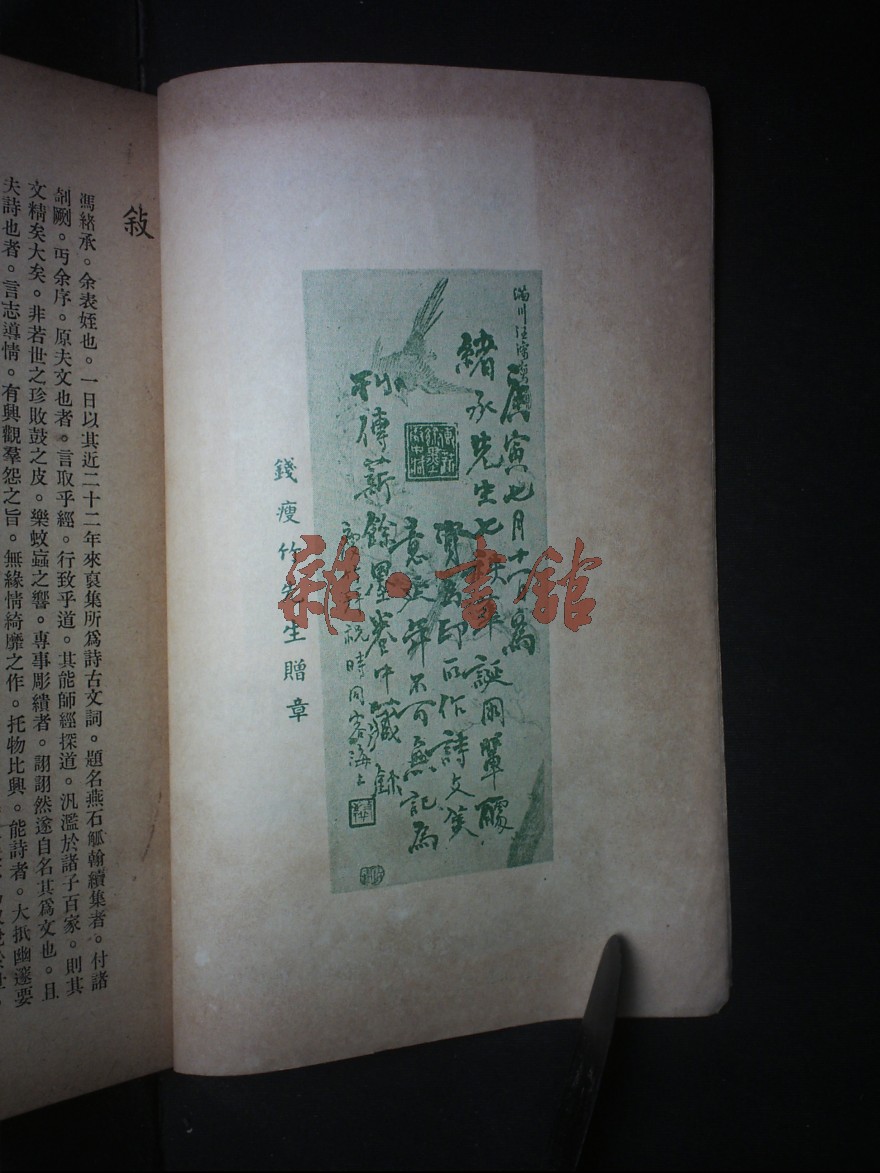 庚寅七月十一日為
緒承先生七秩華誕同輩醵
資為印所作詩文集
意定年不可無記為
刊傳薪餘墨巻中藏
祝時同客海上
錢瘦竹先生贈章
雑·書館
敍
馮緒承。余表姪也。一日以其近二十二年來裒集所爲詩古文詞。題名燕石觚翰續集者。付諸
剞劂。丐余序。原夫文也者。言取乎經。行致乎道。其能師經探道。汎濫於諸子百家。則其
文精矣大矣。非若世之珍敗鼓之皮。樂蚊蝱之響。專事彫繢者。詡詡然遂自名其爲文也。且
夫詩也者。言志導情。有興觀羣怨之旨。無緣情綺靡之作。托物比興。能詩者。大抵幽邃要